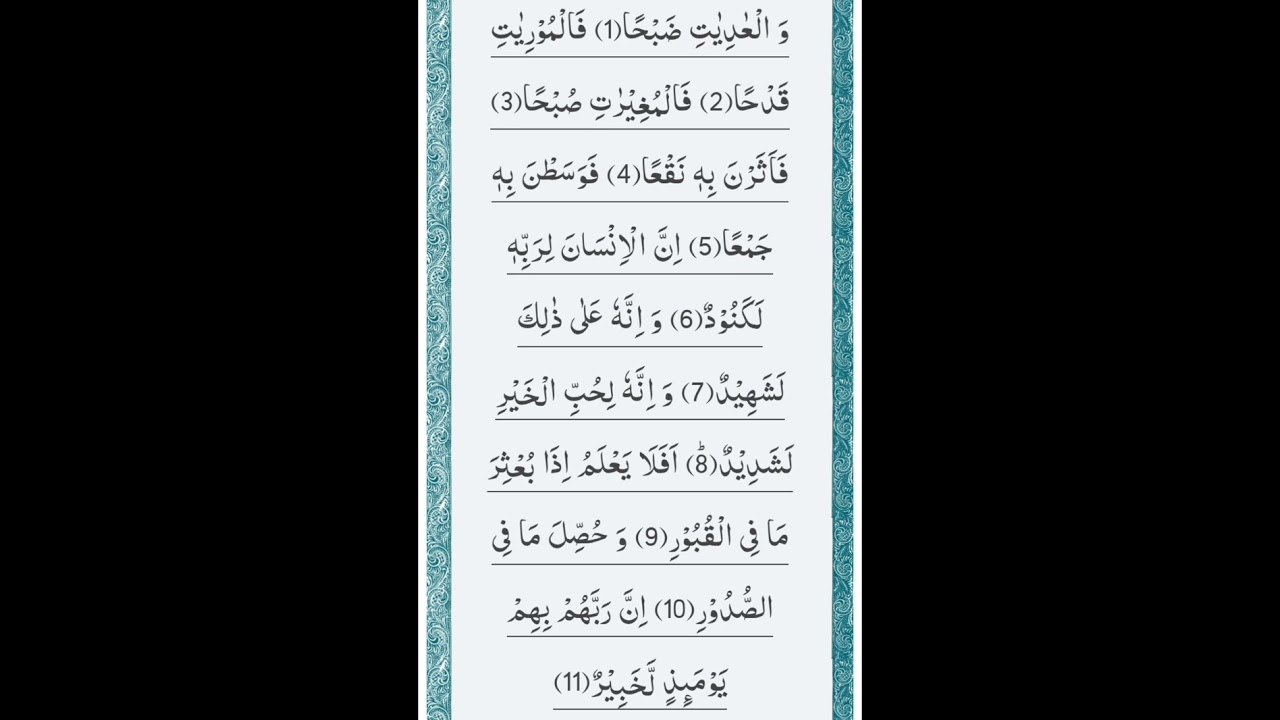 وَ الْعٰدِیٰتِ ضَبْحًا(1) فَالْمُوْرِیٰتِ
قَدْحًا(2) فَالْمُغِیْرٰتِ صُبْحًا(3)
فَاَثَرْنَ بِهٖ نَقْعًا(4) فَوَسَطْنَ بِهٖ
جَمْعًا(5) اِنَّ الْاِنْسَانَ لِرَبِّهٖ
لَكَنُوْدٌ(6) وَ اِنَّهٗ عَلٰى ذٰلِكَ
لَشَهِیْدٌ(7) وَ اِنَّهٗ لِحُبِّ الْخَیْرِ
لَشَدِیْدٌ(8)ؕ اَفَلَا یَعْلَمُ اِذَا بُعْثِرَ
مَا فِی الْقُبُوْرِ(9) وَ حُصِّلَ مَا فِی
الصُّدُوْرِ(10) اِنَّ رَبَّهُمْ بِهِمْ
یَوْمَىٕذٍ لَّخَبِیْرٌ(11)